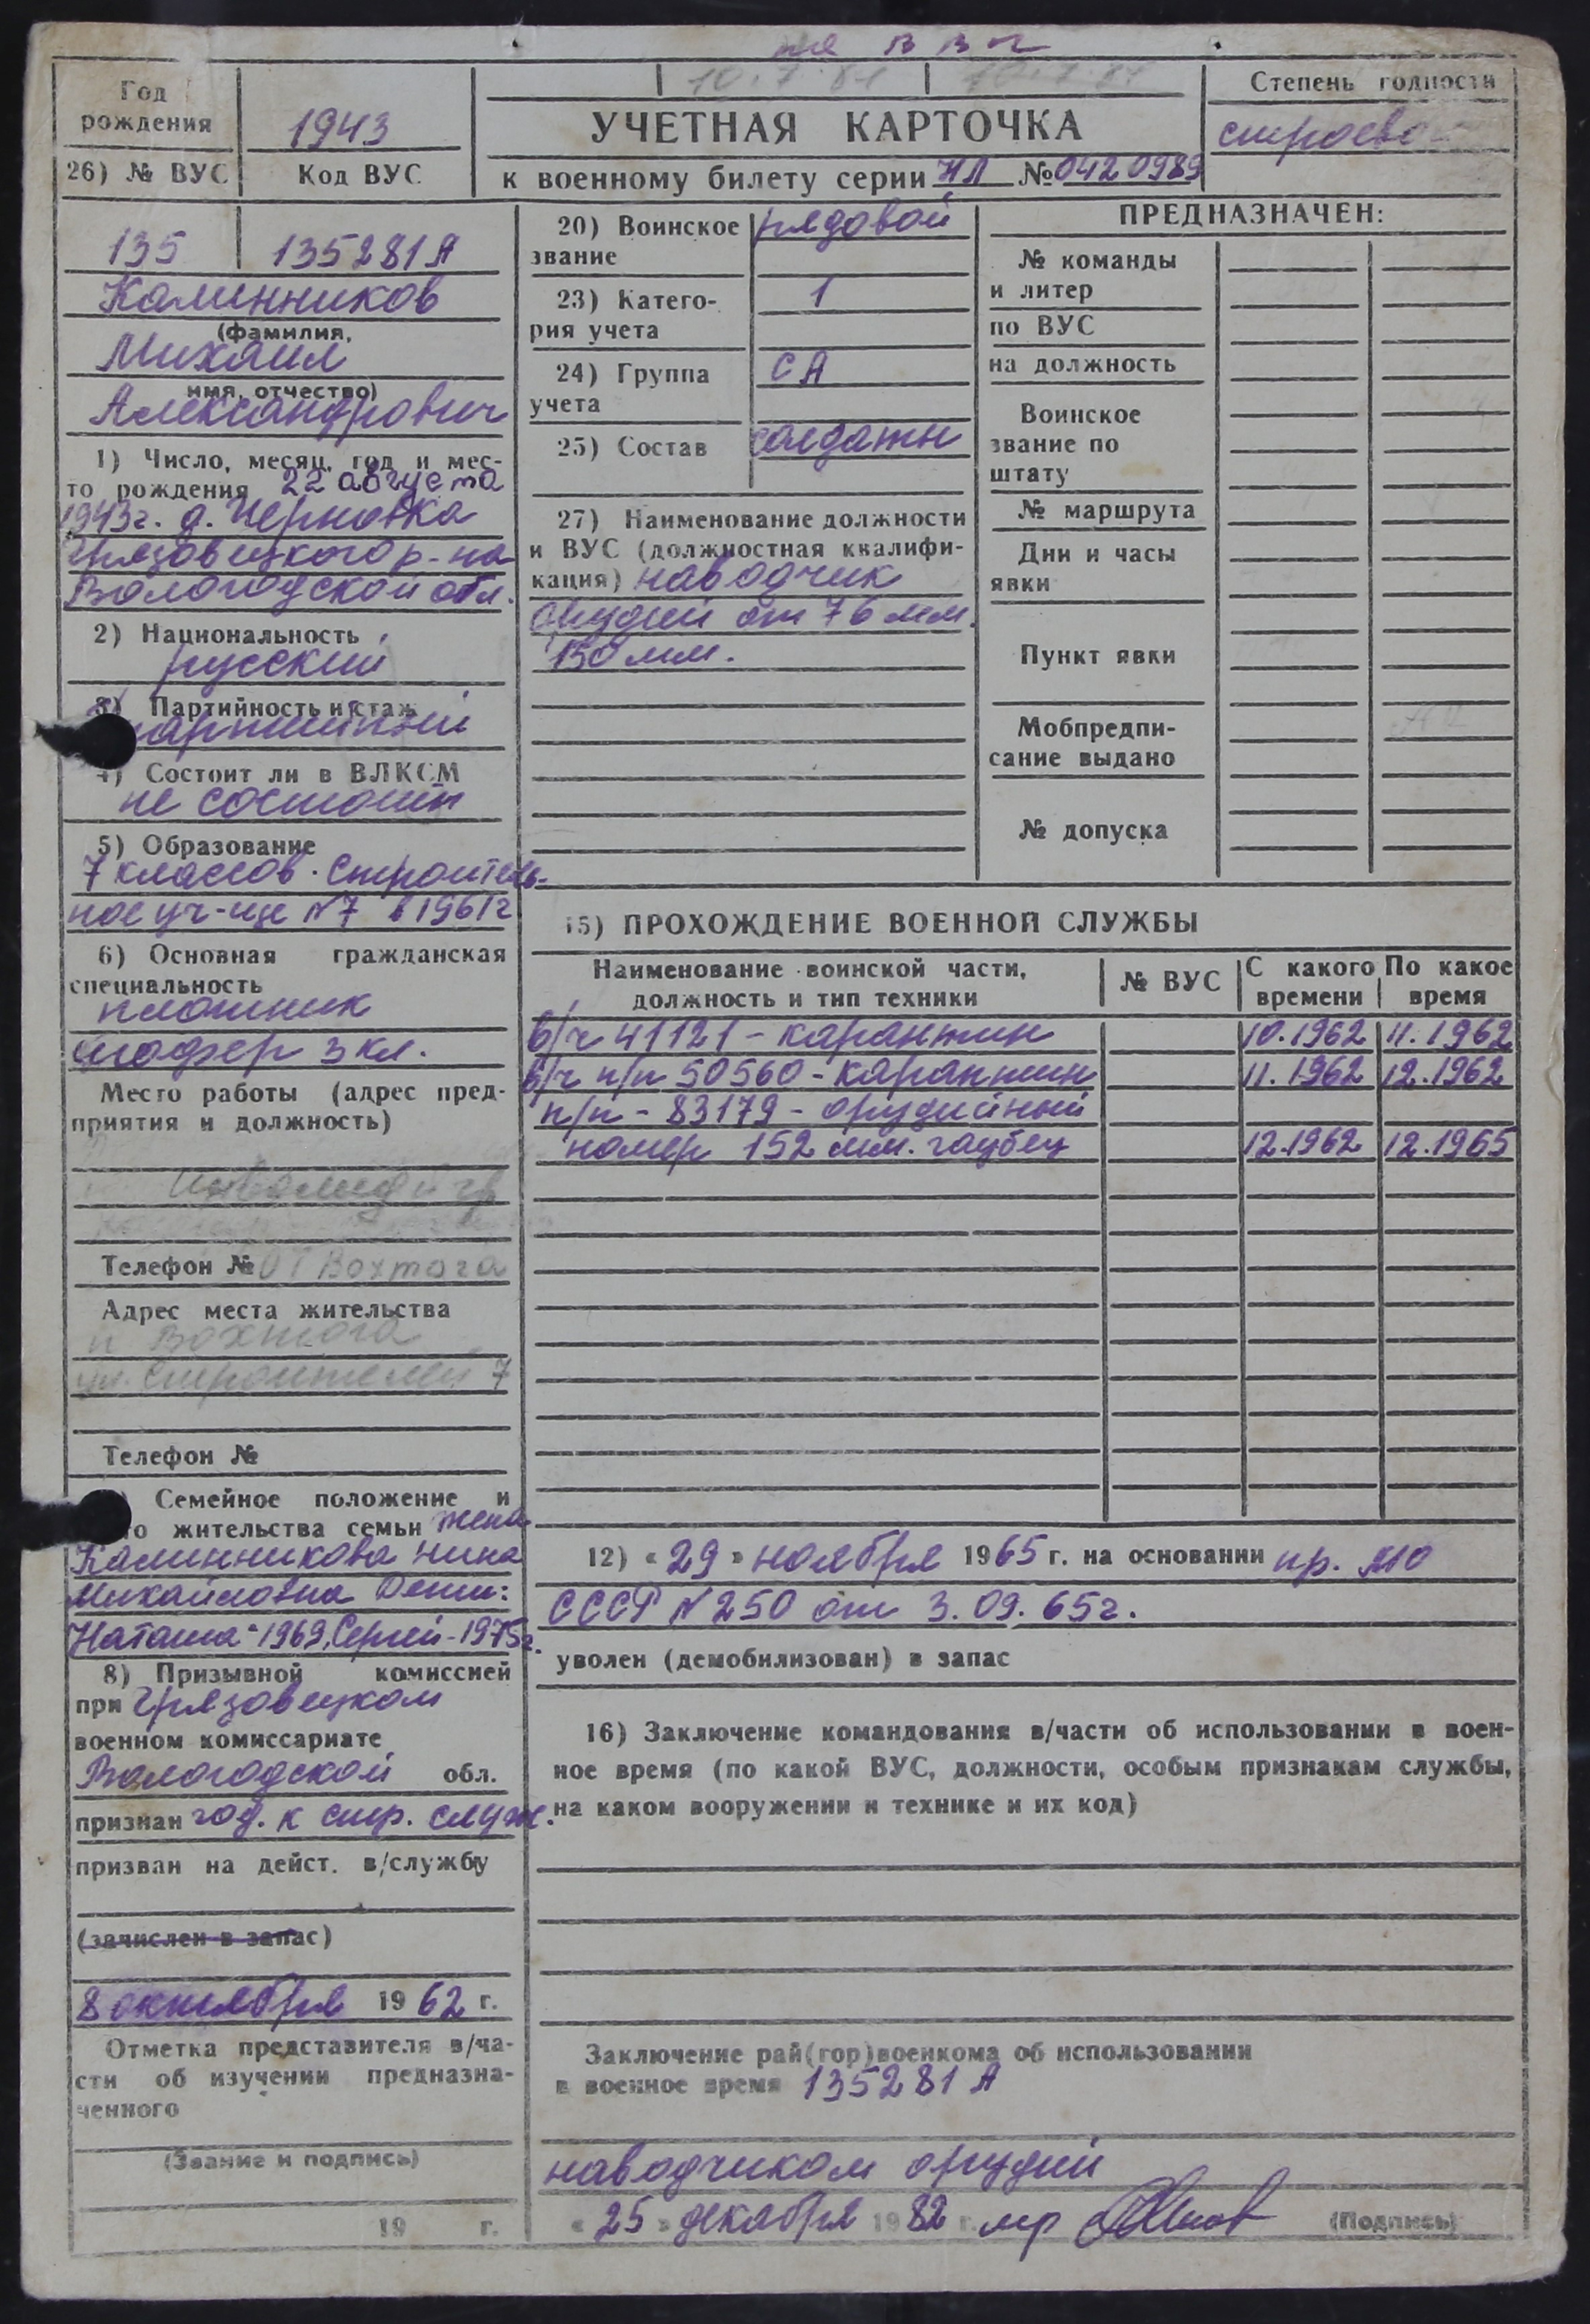 10.7.81
Год
рождения
1943
УЧЕТНАЯ КАРТОЧКА
Степень годности
строево
26) № ВУС
Код ВУС
к военному билету серии НЛ № 0420989
135
135281А
Калинников
(фамилия,
Михаил
имя, отчество)
Александрович
1) Число, месяц, год и мес-
то рождения 22 августа
1943г. д. Черновка
Грязовецкого р-на
Вологодской обл.
2) Национальность
русский
3) Партийность и стаж
партийный
4) Состоит ли в ВЛКСМ
не состоит
5) Образование
7 классов. Строитель-
ное уч-ще №7 в 1961г
6) Основная гражданская
специальность
плотник
шофер 3 кл.
Место работы (адрес пред-
приятия и должность)
Телефон № Вохтога
Адрес места жительства
п Вохтога
ул. Строителей 7
Телефон №
Семейное положение и
то жительства семьи жена
Калинникова Нина
Михайловна Дети:
Наташа-1969, Сергей-1975г.
8) Призывной комиссией
при Грязовецком
военном комиссариате
Вологодской обл.
признан год. к стр. служ.
призван на дейст. в/службу
(зачислен в запас)
8 октября 1962 г.
Отметка представителя в/ча-
сти об изучении предназна-
ченного
(Звание и подпись)
19 г.
20) Воинское
звание
рядовой
23) Катего-
рия учета
1
24) Группа
учета
СА
25) Состав
солдаты
27) Наименование должности
и ВУС (должностная квалифи-
кация) наводчик
орудий от 76 мм.
150 мм.
ПРЕДНАЗНАЧЕН:
№ команды
и литер
по ВУС
на должность
Воинское
звание по
штату
№ маршрута
Дни и часы
явки
Пункт явки
Мобпредпи-
сание выдано
№ допуска
15) ПРОХОЖДЕНИЕ ВОЕННОЙ СЛУЖБЫ
Наименование воинской части,
должность и тип техники
№ ВУС
С какого
времени
По какое
время
в/ч 41121 - карантин 10.1962 11.1962
в/ч п/п 50560 - карантин 11.1962 12.1962
п/п - 83179 - орудийный
номер 152 мм. гаубец 12.1962 12.1965
12) « 29 » ноября 1965 г. на основании пр. МО
СССР №250 от 3.09.65г.
уволен (демобилизован) в запас
16) Заключение командования в/части об использовании в воен-
ное время (по какой ВУС, должности, особым признакам службы,
на каком вооружении и технике и их код)
Заключение рай(гор)военкома об использовании
в военное время 135281 А
наводчиком орудий
« 25 » декабря 1982 г. мр
(Подпись)